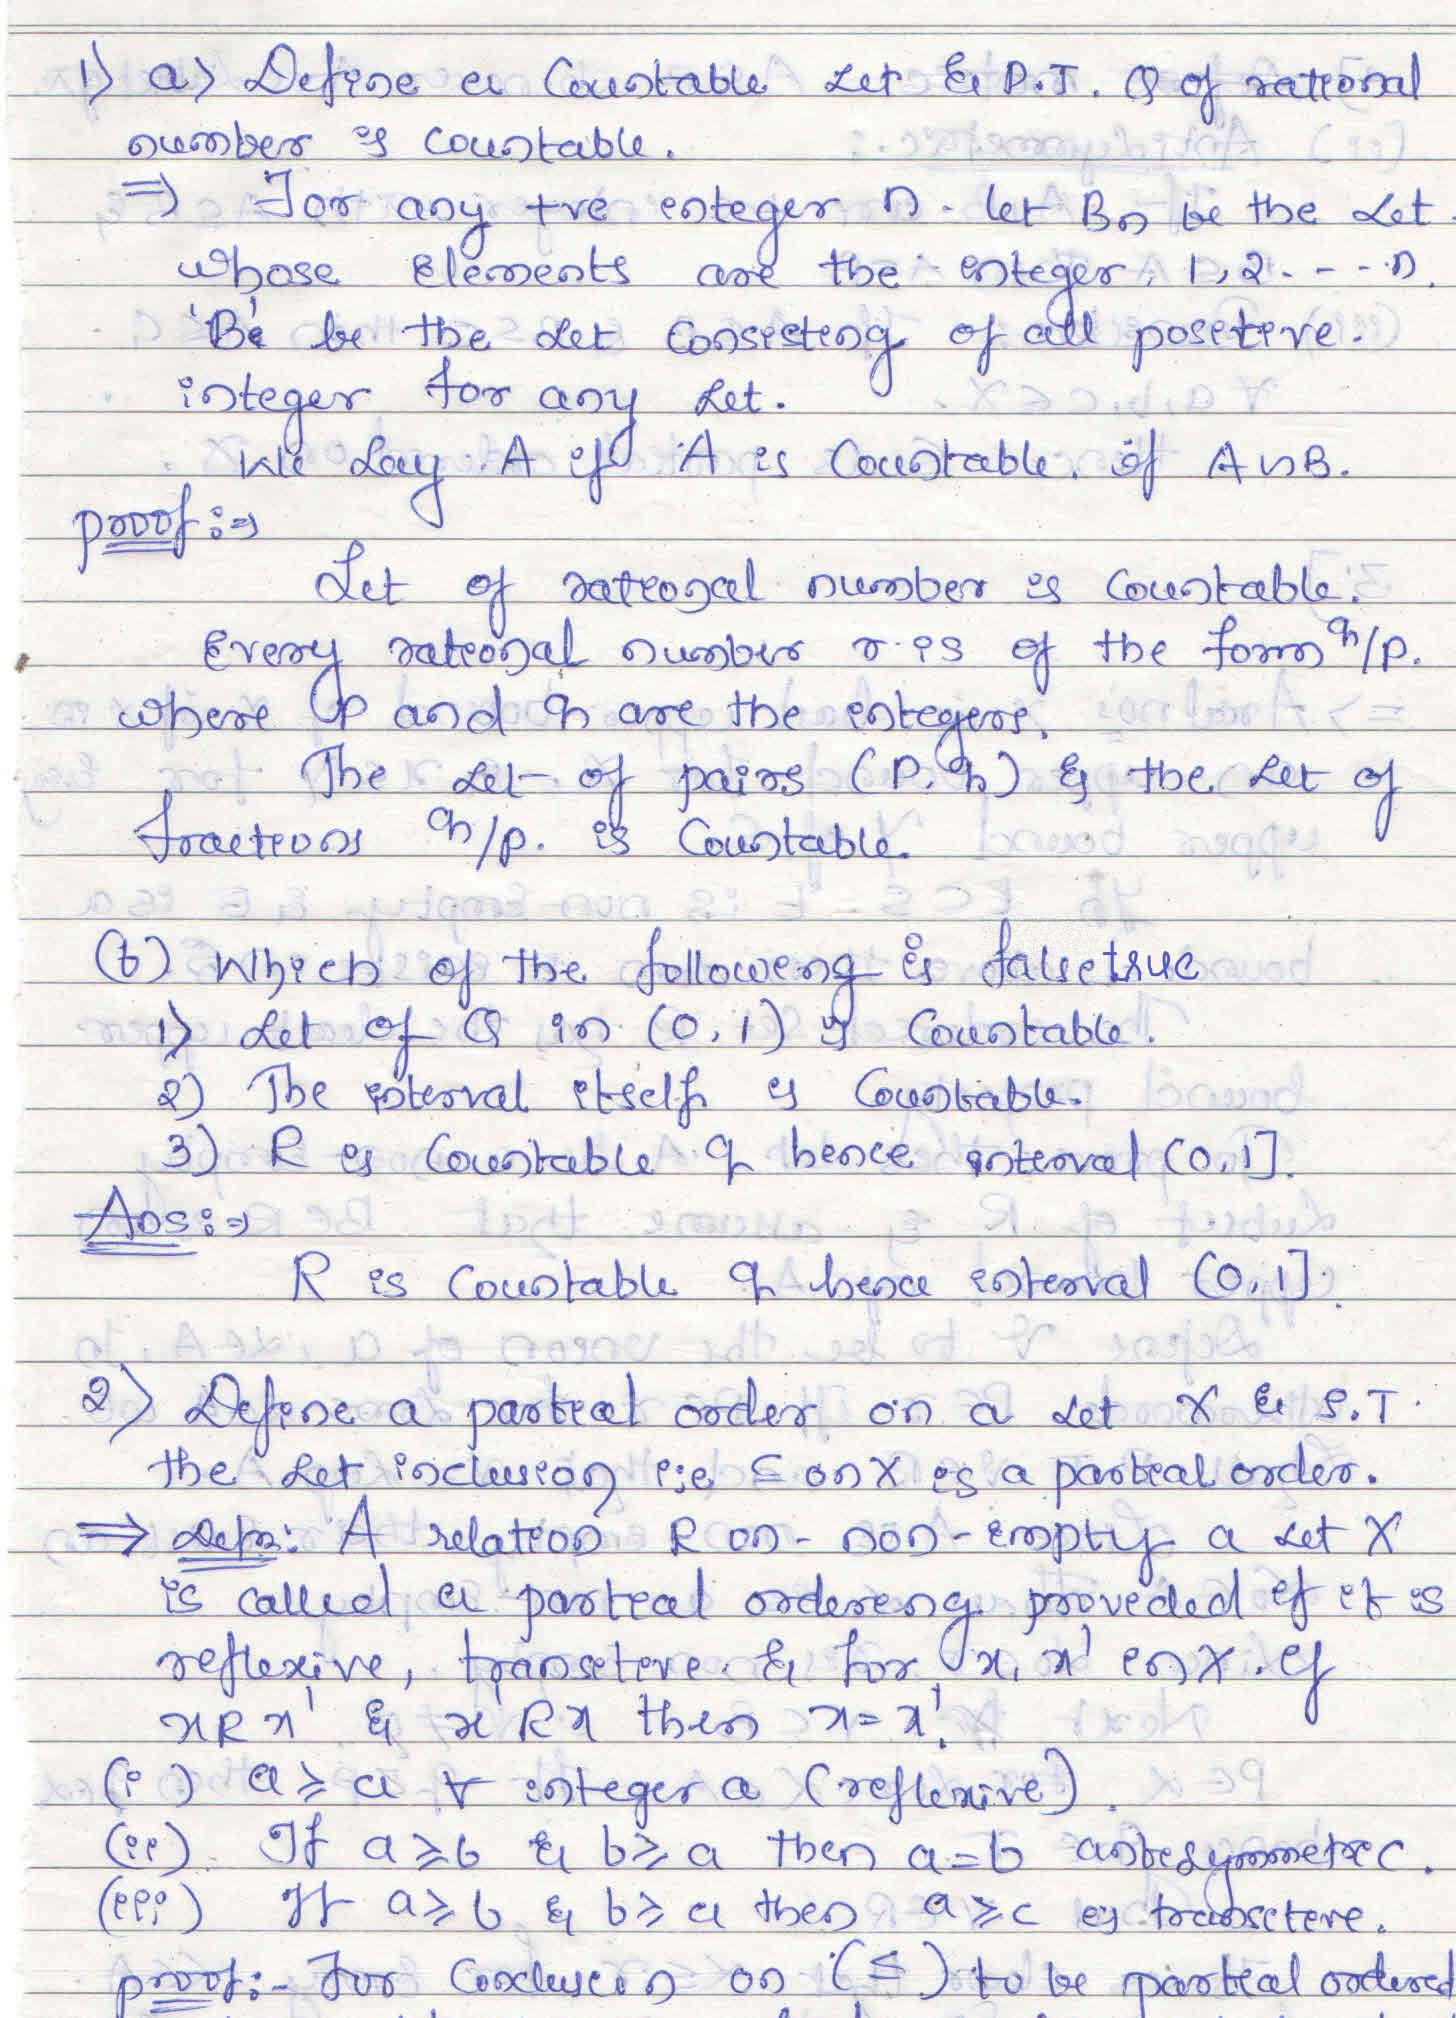 1) a) Define a Countable Set & P.T. Q of rational
number is countable.
⇒ For any +ve integer n. let Bn be the set
whose Elements are the integer, 1, 2 ---- n.
'B' be the set Consisting of all positive.
integer for any set.
We say A if A is Countable. if A∩B.
proof :⇒
Set of rational number is Countable.
Every rational number r. is of the form q/p.
where p and q are the integers.
The set of pairs (p, q) & the set of
fractions q/p. is Countable.
(b) Which of the following is false true
1) Set of Q in (0, 1) is Countable.
2) The interval itself is Countable.
3) R is Countable & hence interval (0, 1].
Ans :⇒
R is Countable & hence interval (0, 1].
2) Define a partial order on a set X & S.T.
the set inclusion i;e ⊆ on X is a partial order.
⇒ Defn: A relation R on - non-Empty a set X
is called a partial ordering provided if it is
reflexive, transitive. & for x, x' in X. if
xRx' & x'Rx then x = x'.
(i) a ≥ a ∀ integer a (reflexive).
(ii) If a ≥ b & b ≥ a then a = b antisymmetric.
(iii) If a ≥ b & b ≥ a then a ≥ c is transitive.
proof:- For on (⊆) to be partial ordered